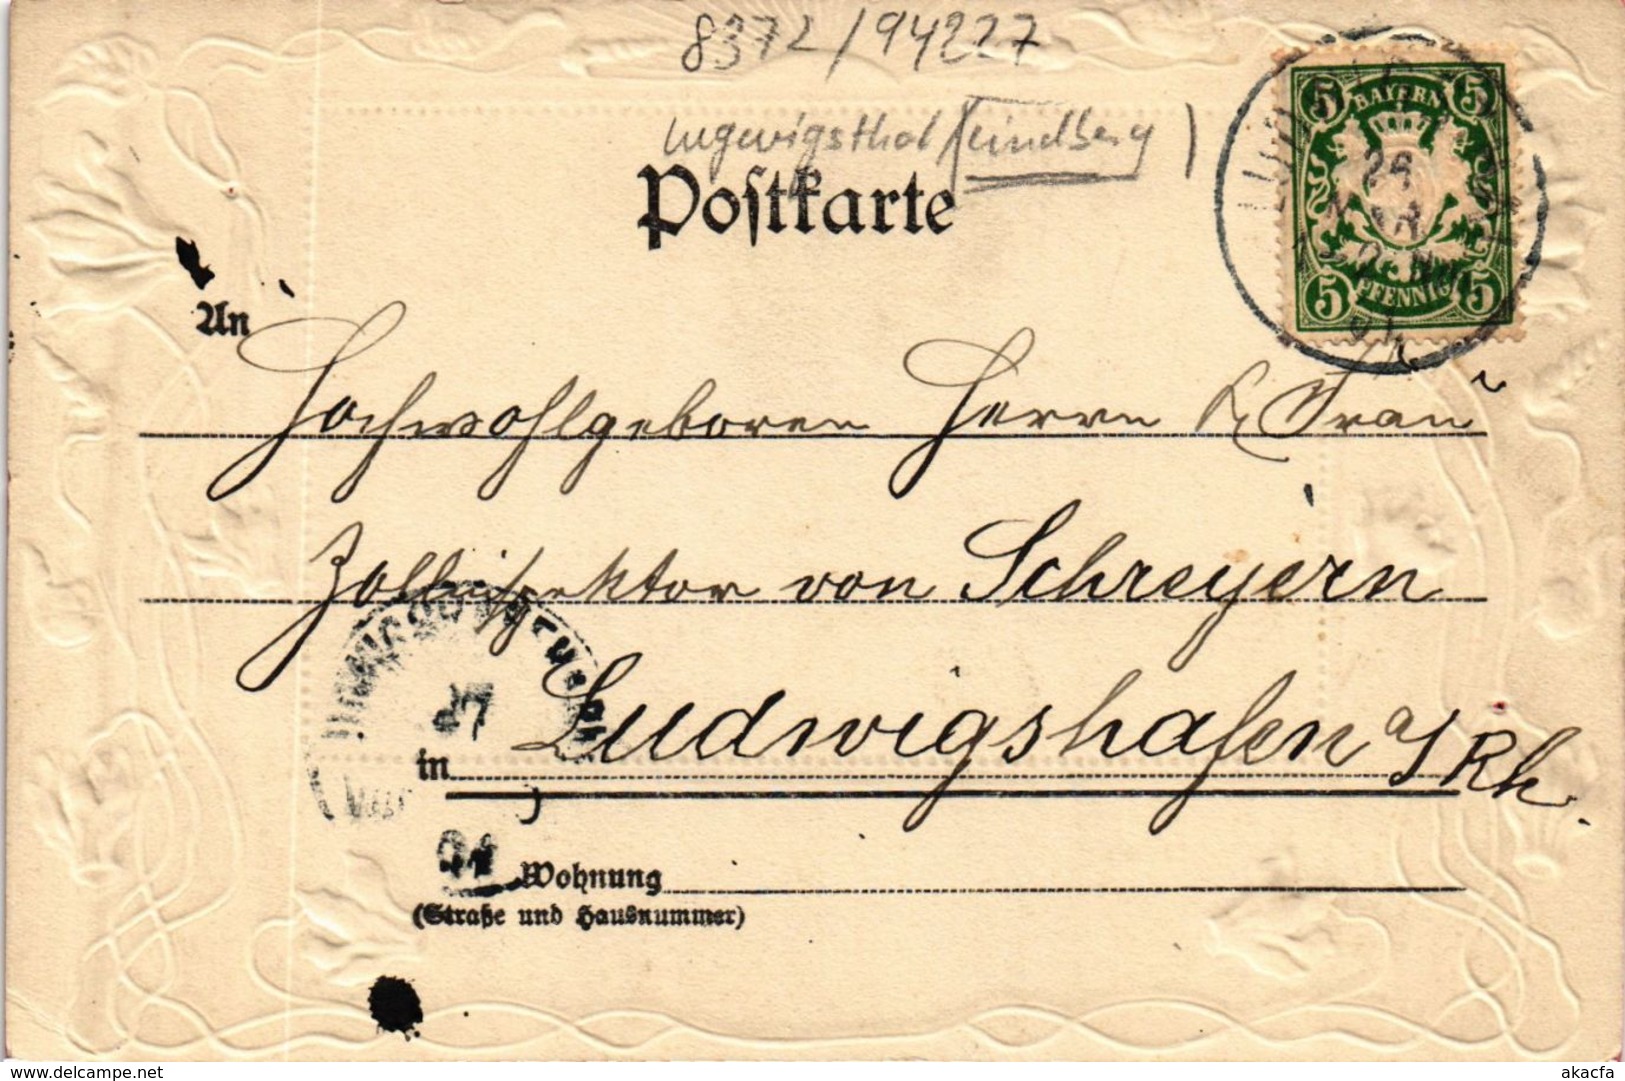 8372/94227
Lugwigsthal (Lindberg)
Postkarte
5 BAYERN 5
5 PFENNIG 5
26
An
Hochwohlgeboren Herrn & Frau
Zollinspektor von Schreyern
27
in Ludwigshafen a/Rh.
01
Wohnung
(Straße und Hausnummer)
delcampe.net
akacfa